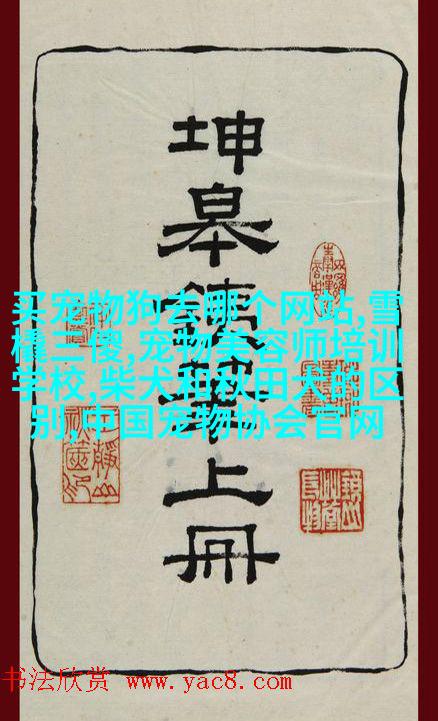 坤皋鐵筆上冊
买宠物狗去哪个网站,雪
橇三傻,宠物美容师培训
学校,柴犬和秋田犬的区
别,中国宠物协会官网
书法欣赏 www.yac8.com